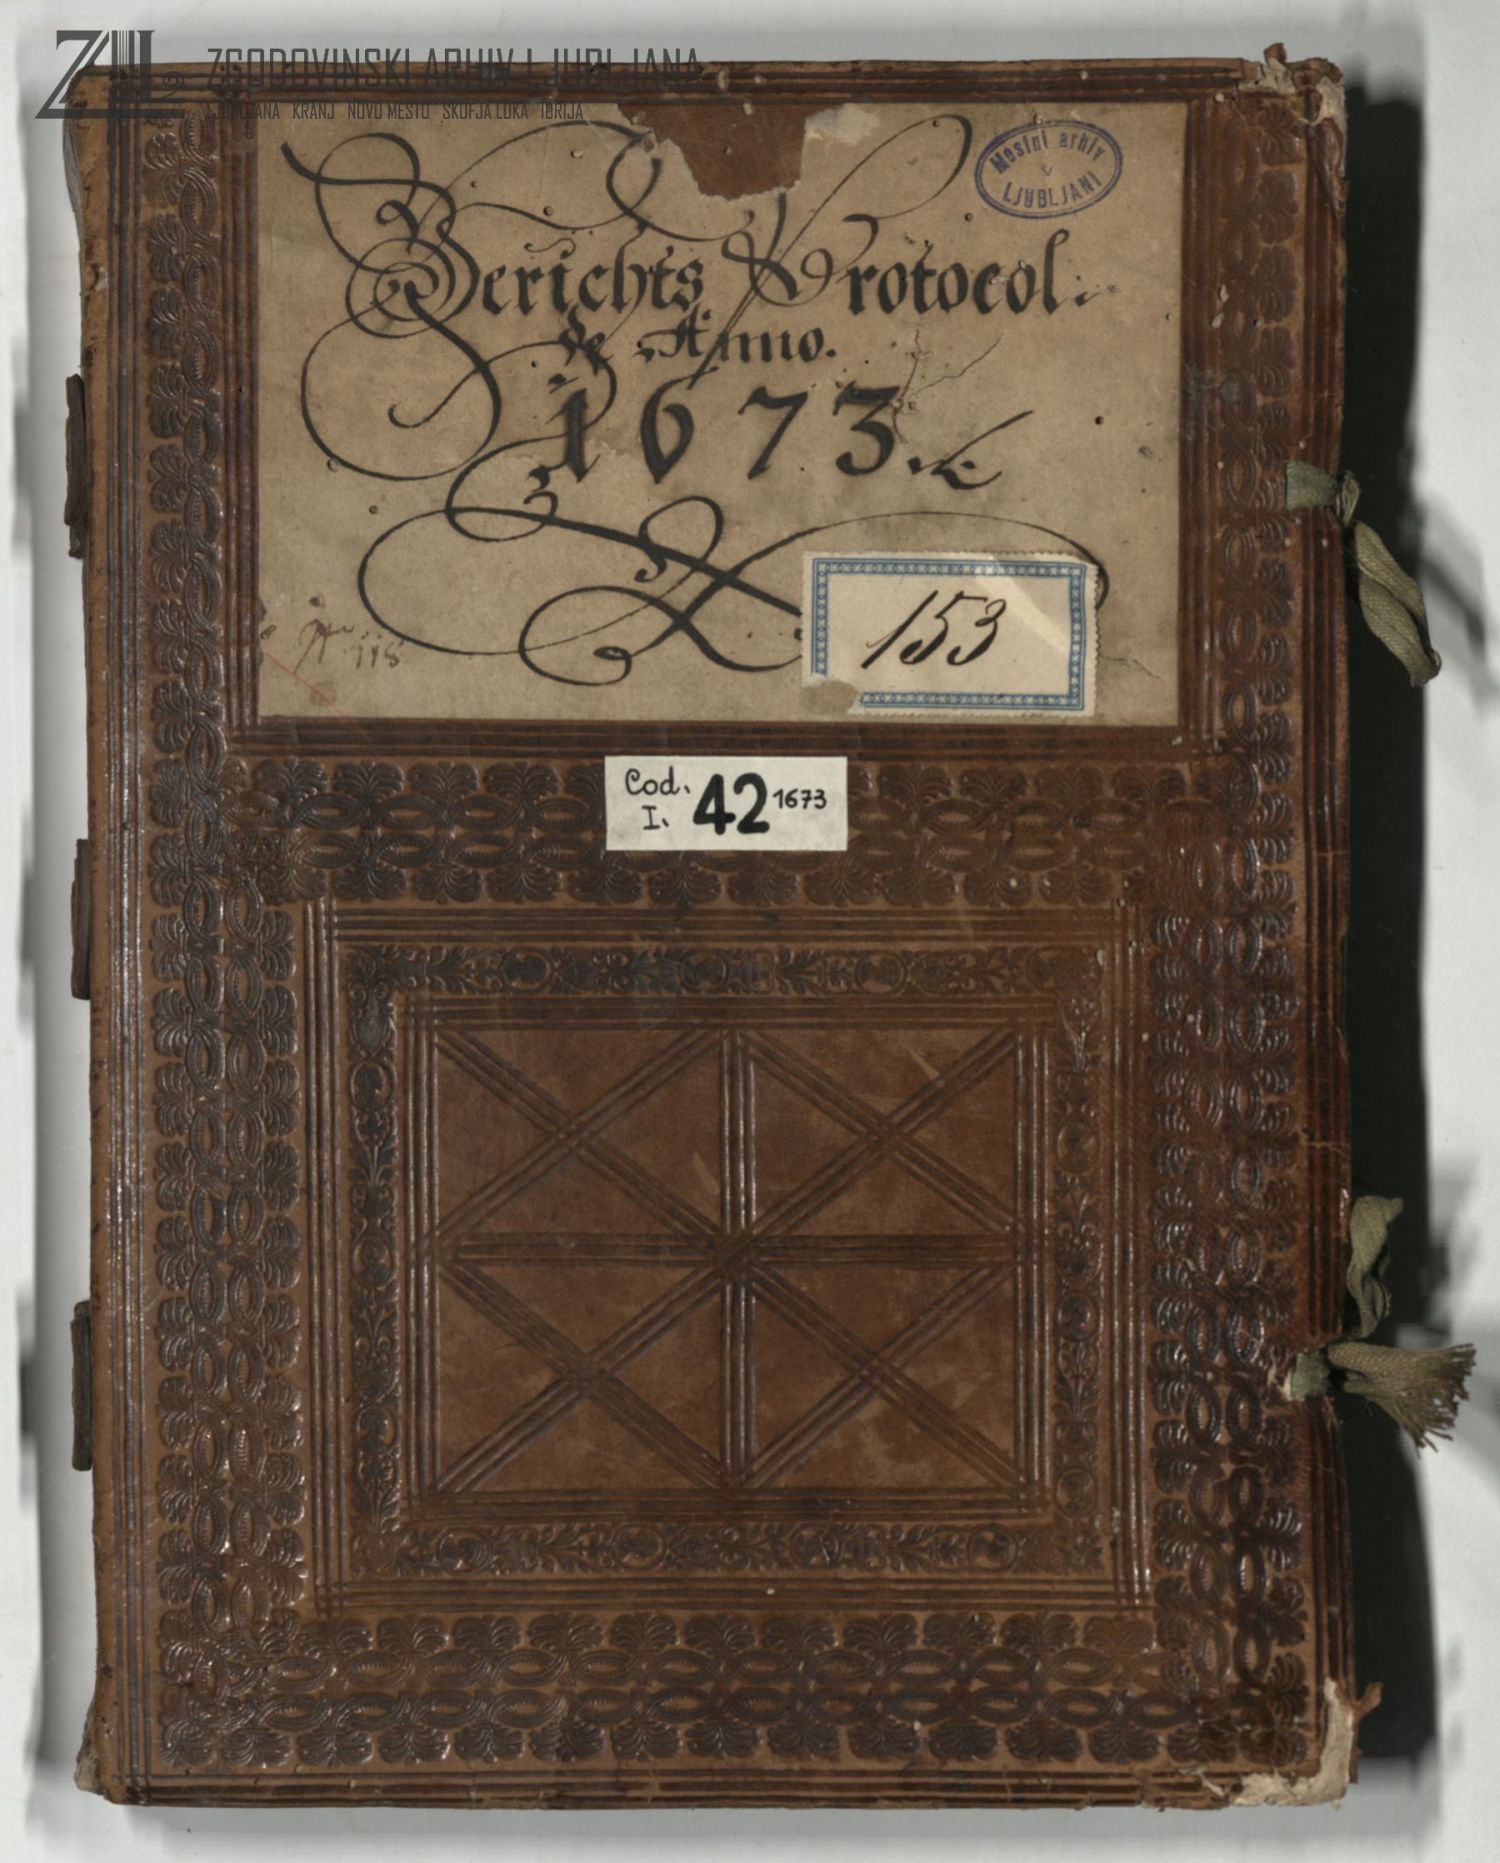 ZGODOVINSKI ARHIV LJUBLJANA
LJUBLJANA KRANJ NOVO MESTO ŠKOFJA LOKA IDRIJA
Mestni arhiv
v
LJUBLJANI
Gerichts Protocol.
de Anno.
1673.
153
118
Cod. I. 42 1673